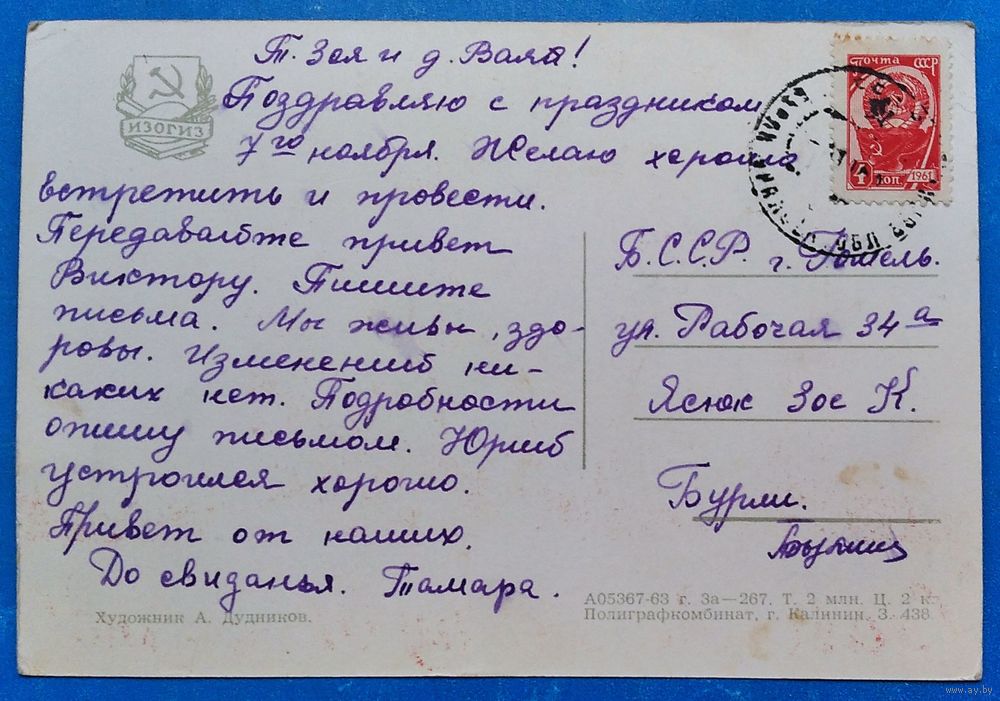 Т. Зоя и д. Валя!
Поздравляю с праздником
7го ноября. Желаю хорошо
встретить и провести.
Передавайте привет
Виктору. Пишите
письма. Мы живы, здо-
ровы. Изменений ни-
каких нет. Подробности
опишу письмом. Юрий
устроился хорошо.
Привет от наших.
До свиданья. Тамара.
ИЗОГИЗ
Художник А. Дудников.
ПОЧТА СССР
4 КОП. 1961
Б.С.С.Р. г. Гомель.
ул. Рабочая 34а
Яснюк Зое К.
Бурли.
А05367-63 г. За—267. Т. 2 млн. Ц. 2 к.
Полиграфкомбинат, г. Калинин. З. 438
www.ay.by